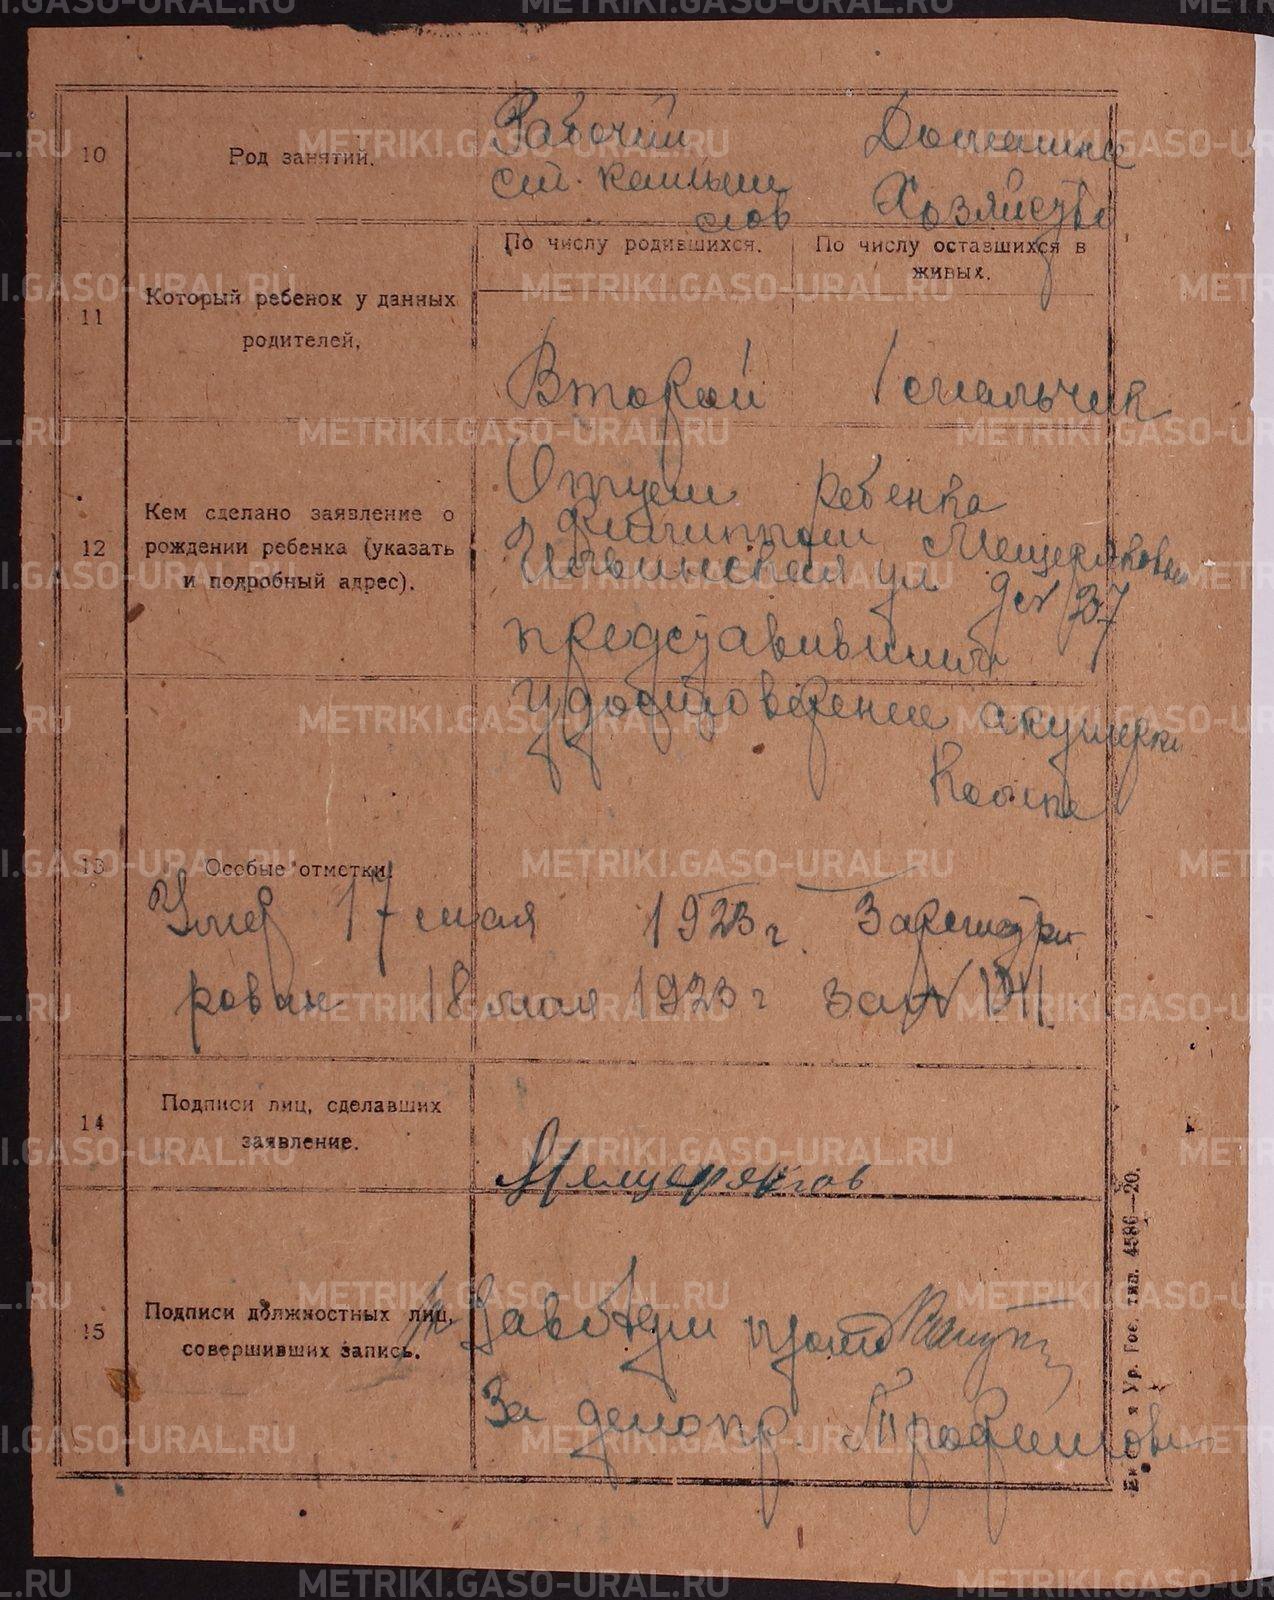 10
Род занятий.
Рабочий
ст. Камыш
лов
Домашнее
Хозяйство
11
Который ребенок у данных
родителей.
По числу родившихся.
По числу оставшихся в
живых.
Второй
1 мальчик
12
Кем сделано заявление о
рождении ребенка (указать
и подробный адрес).
Отцем ребенка
Филиппом Мещеряковым
ул дом 37
представившим
удостоверение акушерки
13
Особые отметки.
Умер 17 мая 1923 г. Зарегистри
рован 18 мая 1923 г за №
14
Подписи лиц, сделавших
заявление.
Мещеряков
15
Подписи должностных лиц,
совершивших запись.
Завотдел
За делопр. Трофимов
Ур. Гос. тип. 4586—20.
METRIKI.GASO-URAL.RU